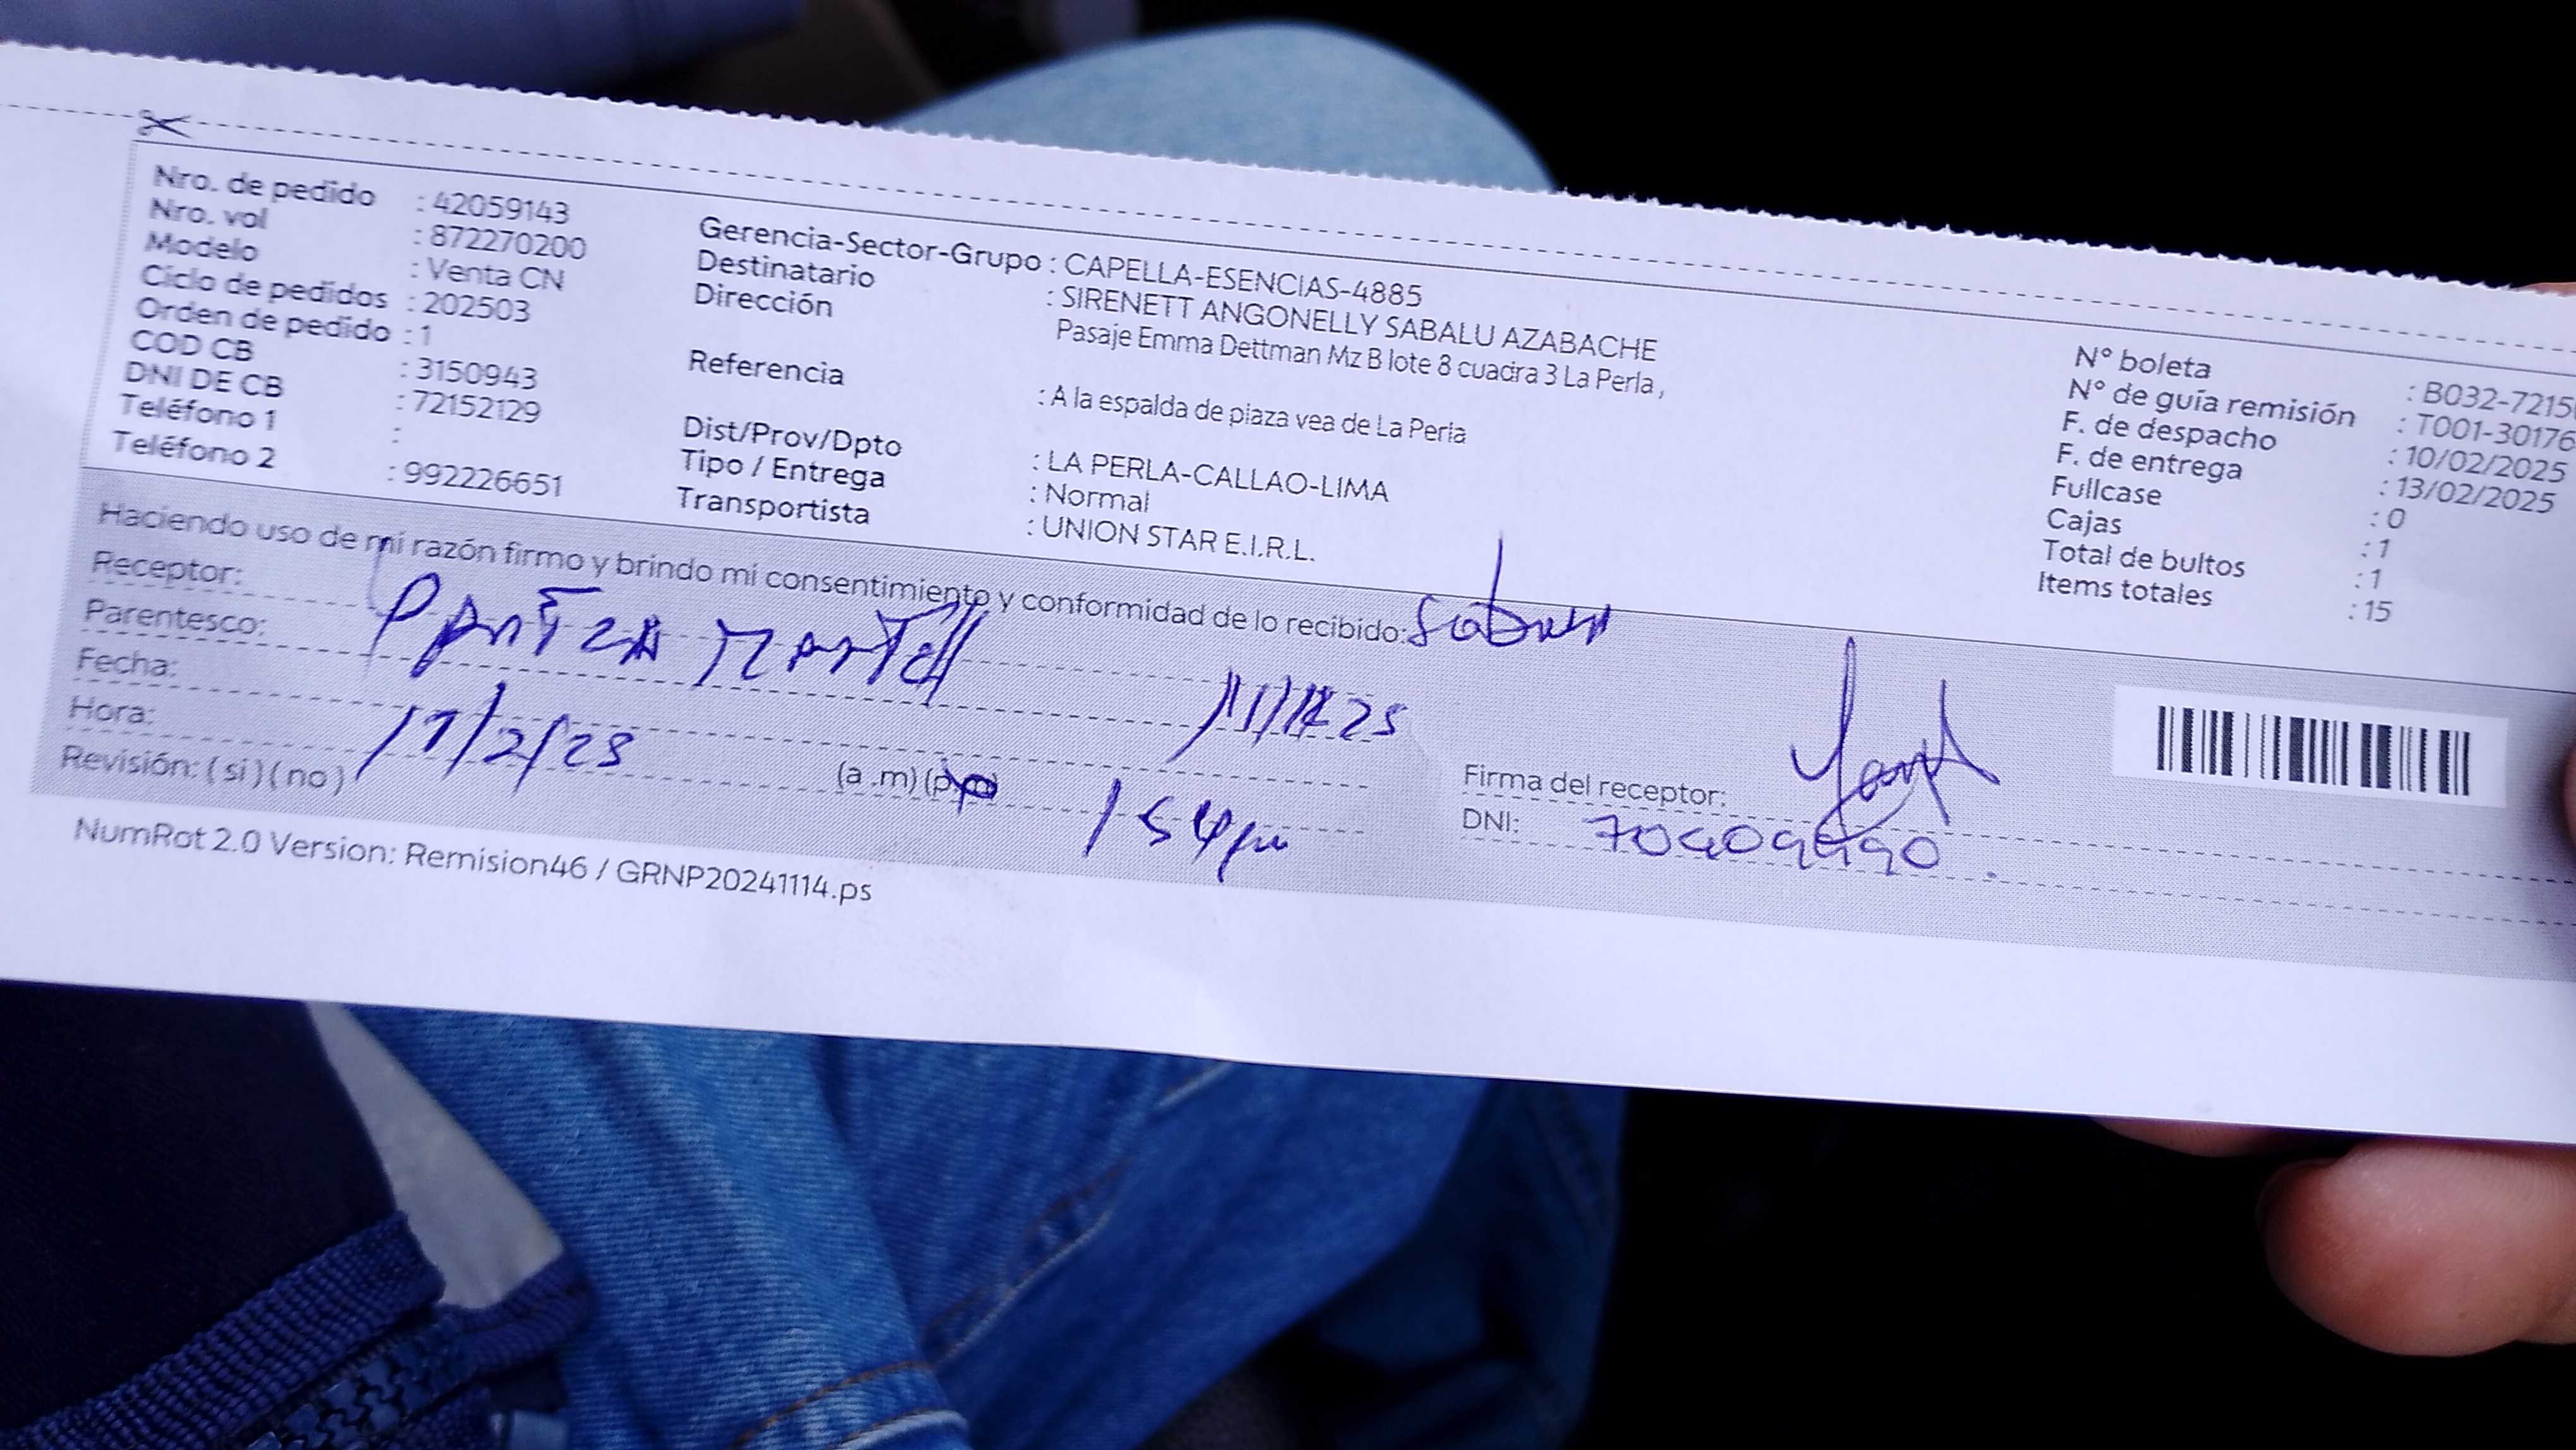 Nro. de pedido : 42059143
Nro. vol : 872270200
Modelo : Venta CN
Ciclo de pedidos : 202503
Orden de pedido : 1
COD CB : 3150943
DNI DE CB : 72152129
Teléfono 1 :
Teléfono 2 : 992226651
Gerencia-Sector-Grupo : CAPELLA-ESENCIAS-4885
Destinatario : SIRENETT ANGONELLY SABALU AZABACHE
Dirección Pasaje Emma Dettman Mz B lote 8 cuadra 3 La Perla ,
Referencia : A la espalda de plaza vea de La Perla
Dist/Prov/Dpto : LA PERLA-CALLAO-LIMA
Tipo / Entrega : Normal
Transportista : UNION STAR E.I.R.L.
N° boleta : B032-7215
N° de guía remisión : T001-30176
F. de despacho : 10/02/2025
F. de entrega : 13/02/2025
Fullcase : 0
Cajas : 1
Total de bultos : 1
Items totales : 15
Haciendo uso de mi razón firmo y brindo mi consentimiento y conformidad de lo recibido:
Receptor:
Parentesco:
Fecha:
Hora: (a .m)
Revisión: ( si ) ( no )
Firma del receptor:
DNI:
NumRot 2.0 Version: Remision46 / GRNP20241114.ps